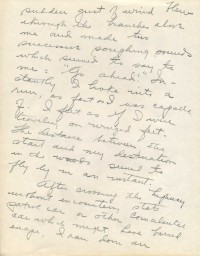 sudden gust of wind flew
through the branches above
me and made two
successive soughing sounds
which seemed to say to
me: "Go ahead!" In-
stantly I broke into a
run, as fast as I was capable
of. I felt as if I were
traveling on winged feet.
The distance between the
start and my destination
in the woods seemed to
fly by in an instant.
After crossing the highway
without encountering state
patrol car or other Comalander
car which might have barred
escape. I ran down an